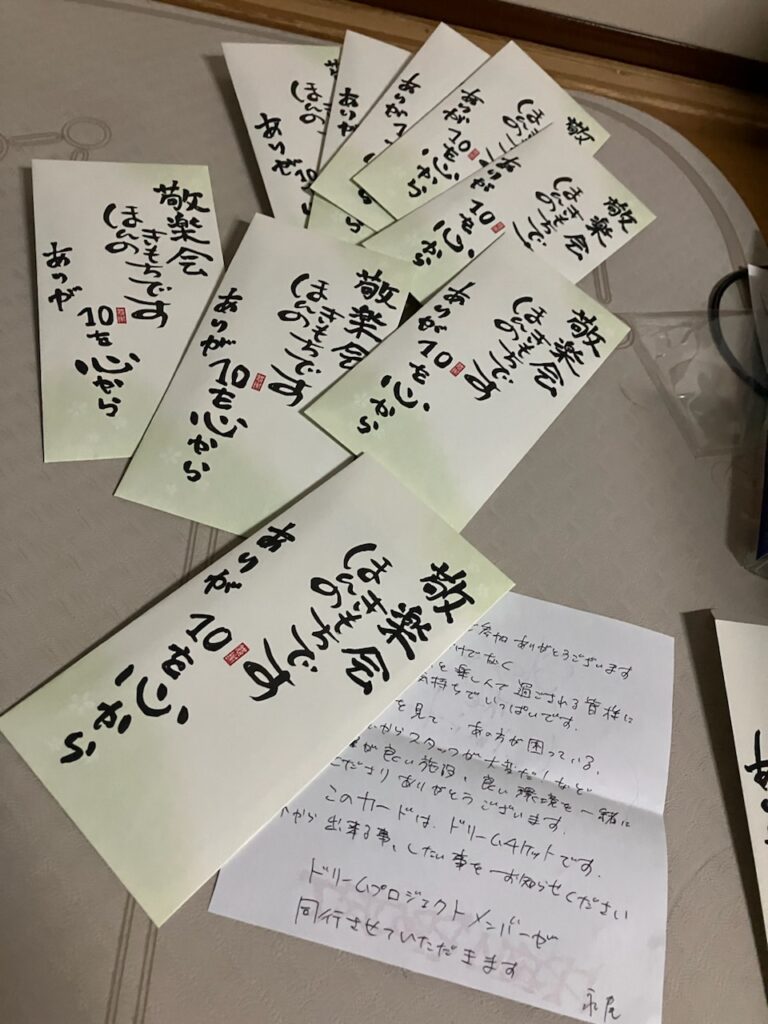 敬楽会
ほんの
きもちです
ありが
10を
心から
敬楽会
ほんの
きもちです
ありが10を
心から
敬楽会
ほんの
きもちです
ありが10を
心から
敬楽会
ほんの
きもちです
ありが
10を
心から
敬楽会
ほんの
きもちです
ありが
10を
心から
敬
ほんの
きもちです
ありが
10を
心から
ありが
ありが
ありが
参加ありがとうございます
けでなく
を楽しんで過ごされる皆様に
気持ちでいっぱいです。
を見て、あの方が困っている、
からスタッフが大変だ!など
が良い施設、良い環境を一緒に
くださり ありがとうございます。
このカードは、ドリームチケットです。
から出来る事、したい事をお知らせください
ドリームプロジェクトメンバーが
同行させていただきます